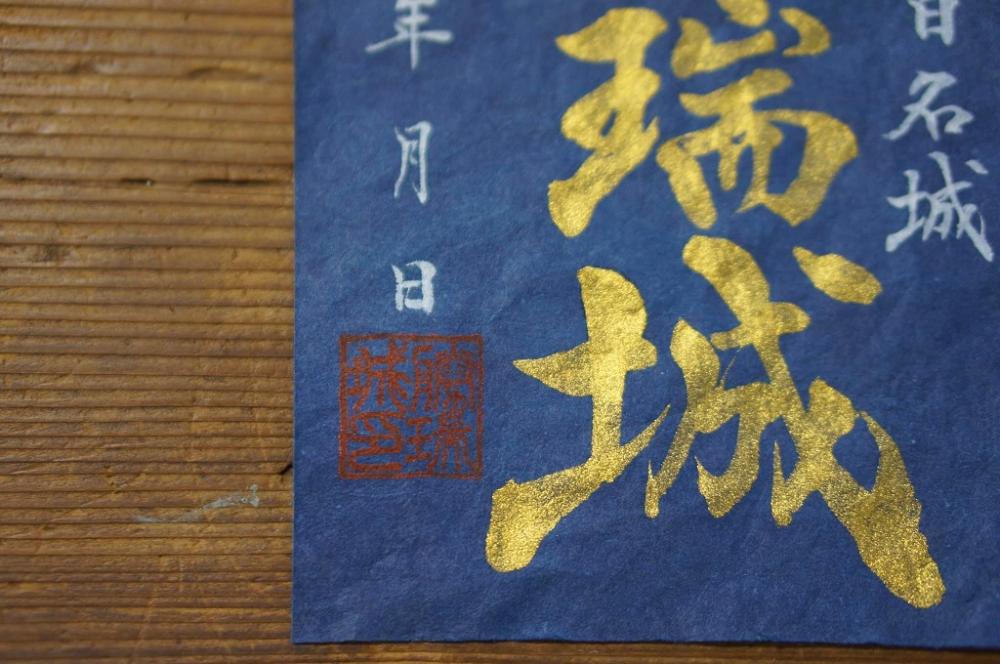 百名城
瑞城
年月日
勝瑞
城印